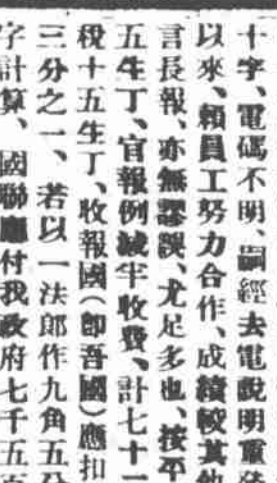 十字、電碼不明、嗣經去電說明重發
以來、賴員工努力合作、成績較其他
言長報、亦無謬誤、尤足多也、按平
五生丁、官報例減半收費、計七十一
稅十五生丁、收報國（卽吾國）應扣
三分之一、若以一法郎作九角五分
字計算、國聯應付我政府七千五百